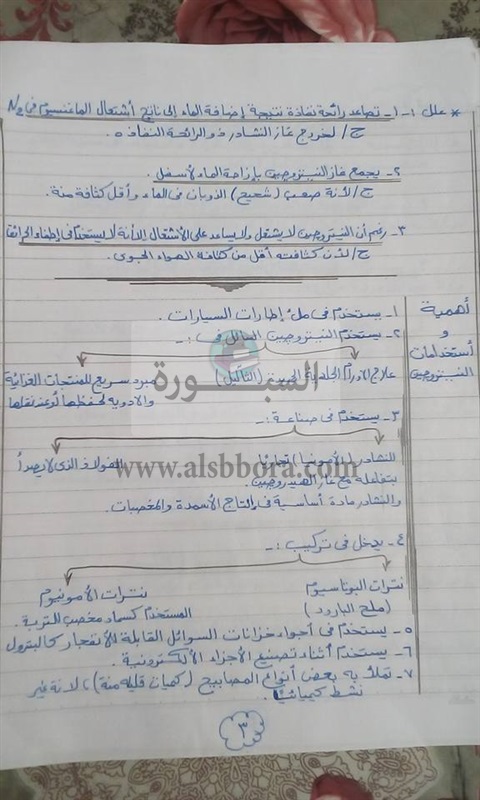 * علل :- ١- تصاعد رائحة نفاذة نتيجة إضافة الماء إلى ناتج أشتعال الماغنسيوم فى N₂
ج/ لخروج غاز النشادر ذو الرائحة النفاذه.
٢- يجمع غاز النيتروجين بإزاحة الماء لأسفل.
ج/ لأنة صعب (شحيح) الذوبان فى الماء وأقل كثافة منة.
٣- رغم أن النيتروجين لا يشتعل ولا يساعد على الأشتعال إلا أنة لا يستخدم فى إطفاء الحرائق
ج/ لأن كثافتة أقل من كثافة الهواء الجوى.
أهمية
و
أستخدامات
النيتروجين
١- يستخدم فى ملئ إطارات السيارات.
٢- يستخدم النيتروجين المسال فى :-
علاج الأورام الجلدية الحميدة (الثآليل)
مبرد سريع للمنتجات الغذائية
والأدوية لحفظها أو عند نقلها
السبورة
٣- يستخدم فى صناعة :-
النشادر (الأمونيا) تجاريا
الفولاذ الذى لا يصدأ
www.alsbbora.com
بتفاعله مع غاز الهيدروجين.
والنشادر مادة أساسية فى إنتاج الأسمدة والمخصبات.
٤- يدخل فى تركيب :-
نترات البوتاسيوم
(ملح البارود)
نترات الأمونيوم
المستخدم كسماد مخصب للتربة.
٥- يستخدم فى أجواء خزانات السوائل القابلة للأنفجار كالبترول
٦- يستخدم أثناء تصنيع الأجزاء الألكترونية.
٧- تملأ به بعض أنواع المصابيح (كميات قليله منة)، لانة غير
نشط كيميائياً.
٣